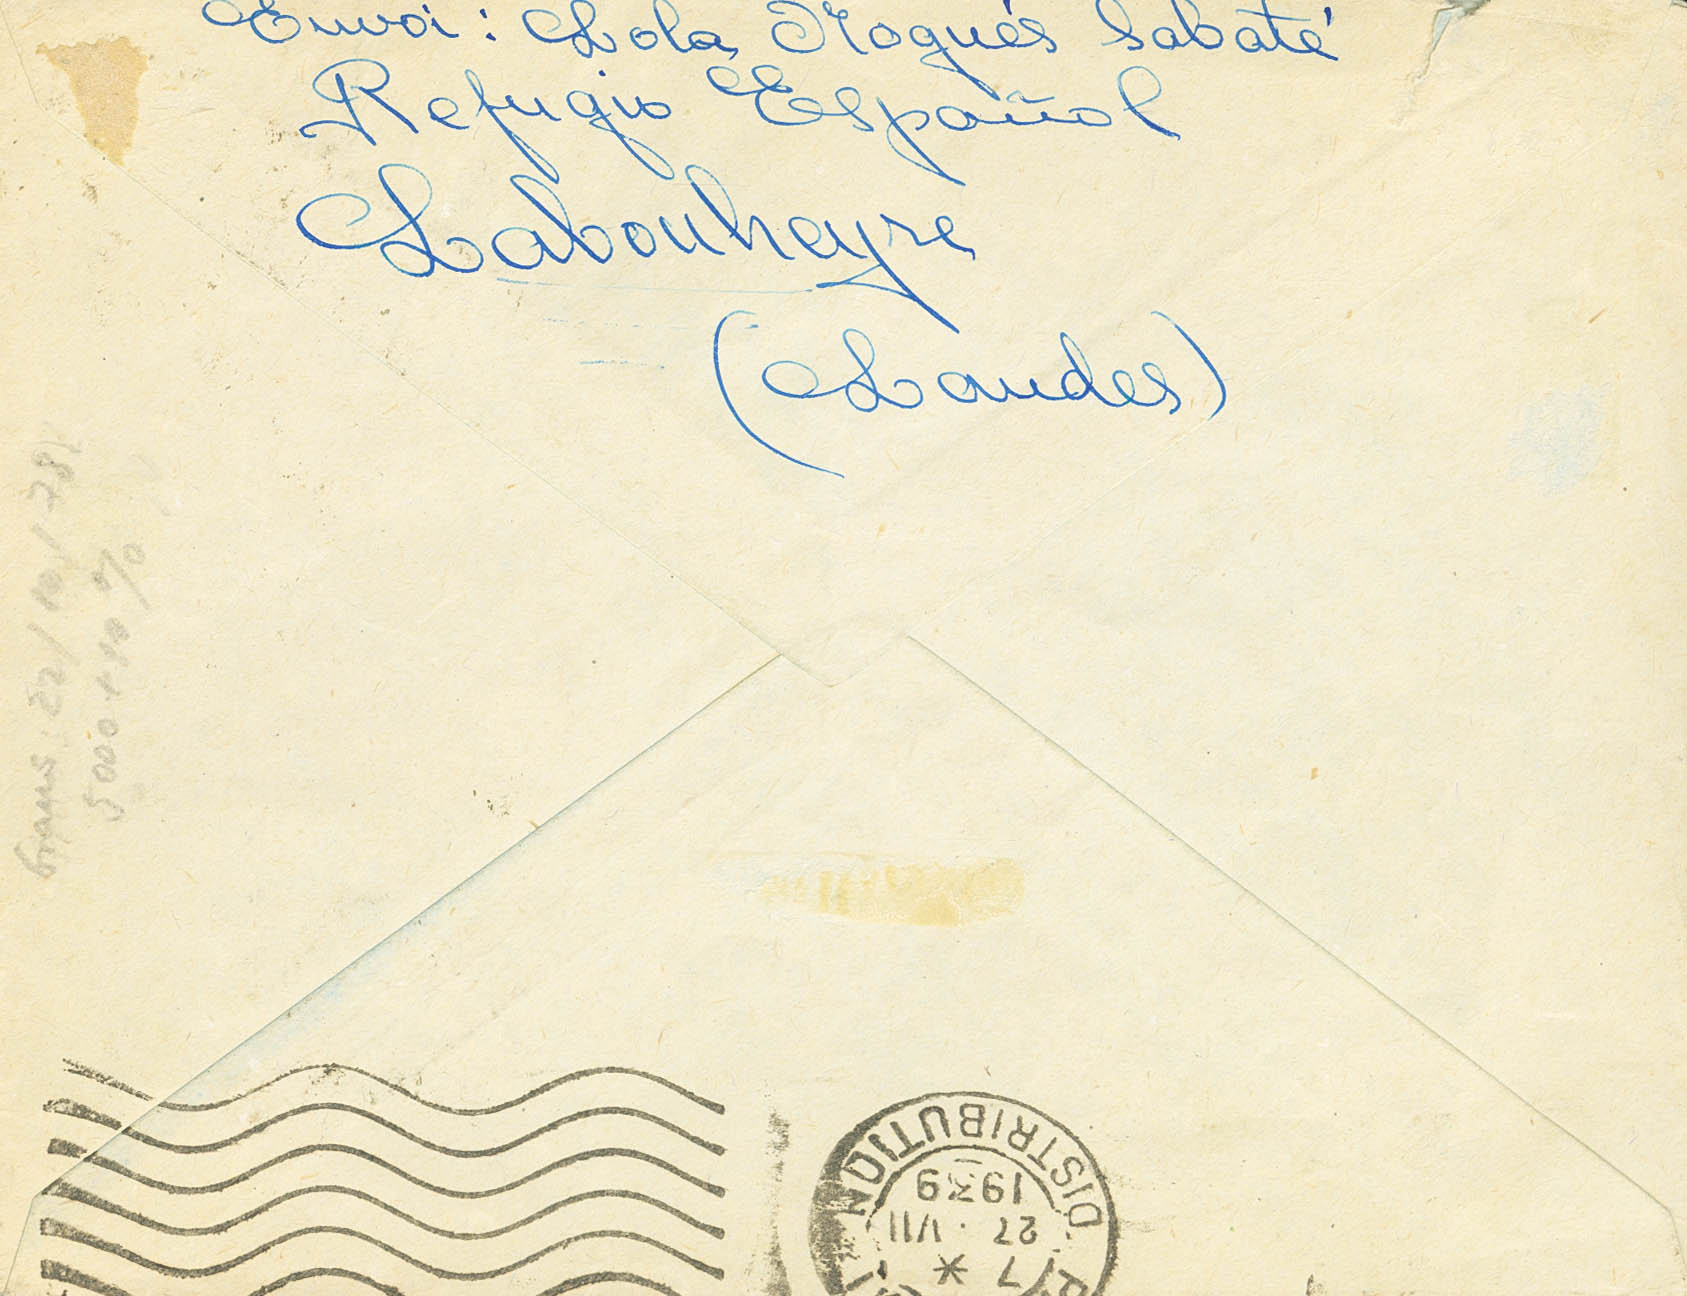 Envoi : Lola Nogués Sabaté
Refugio Español
Labouheyre
(Landes)
22/10/78
5000 + 10 %
DISTRIBUTION
1939
27 · VII
17 *